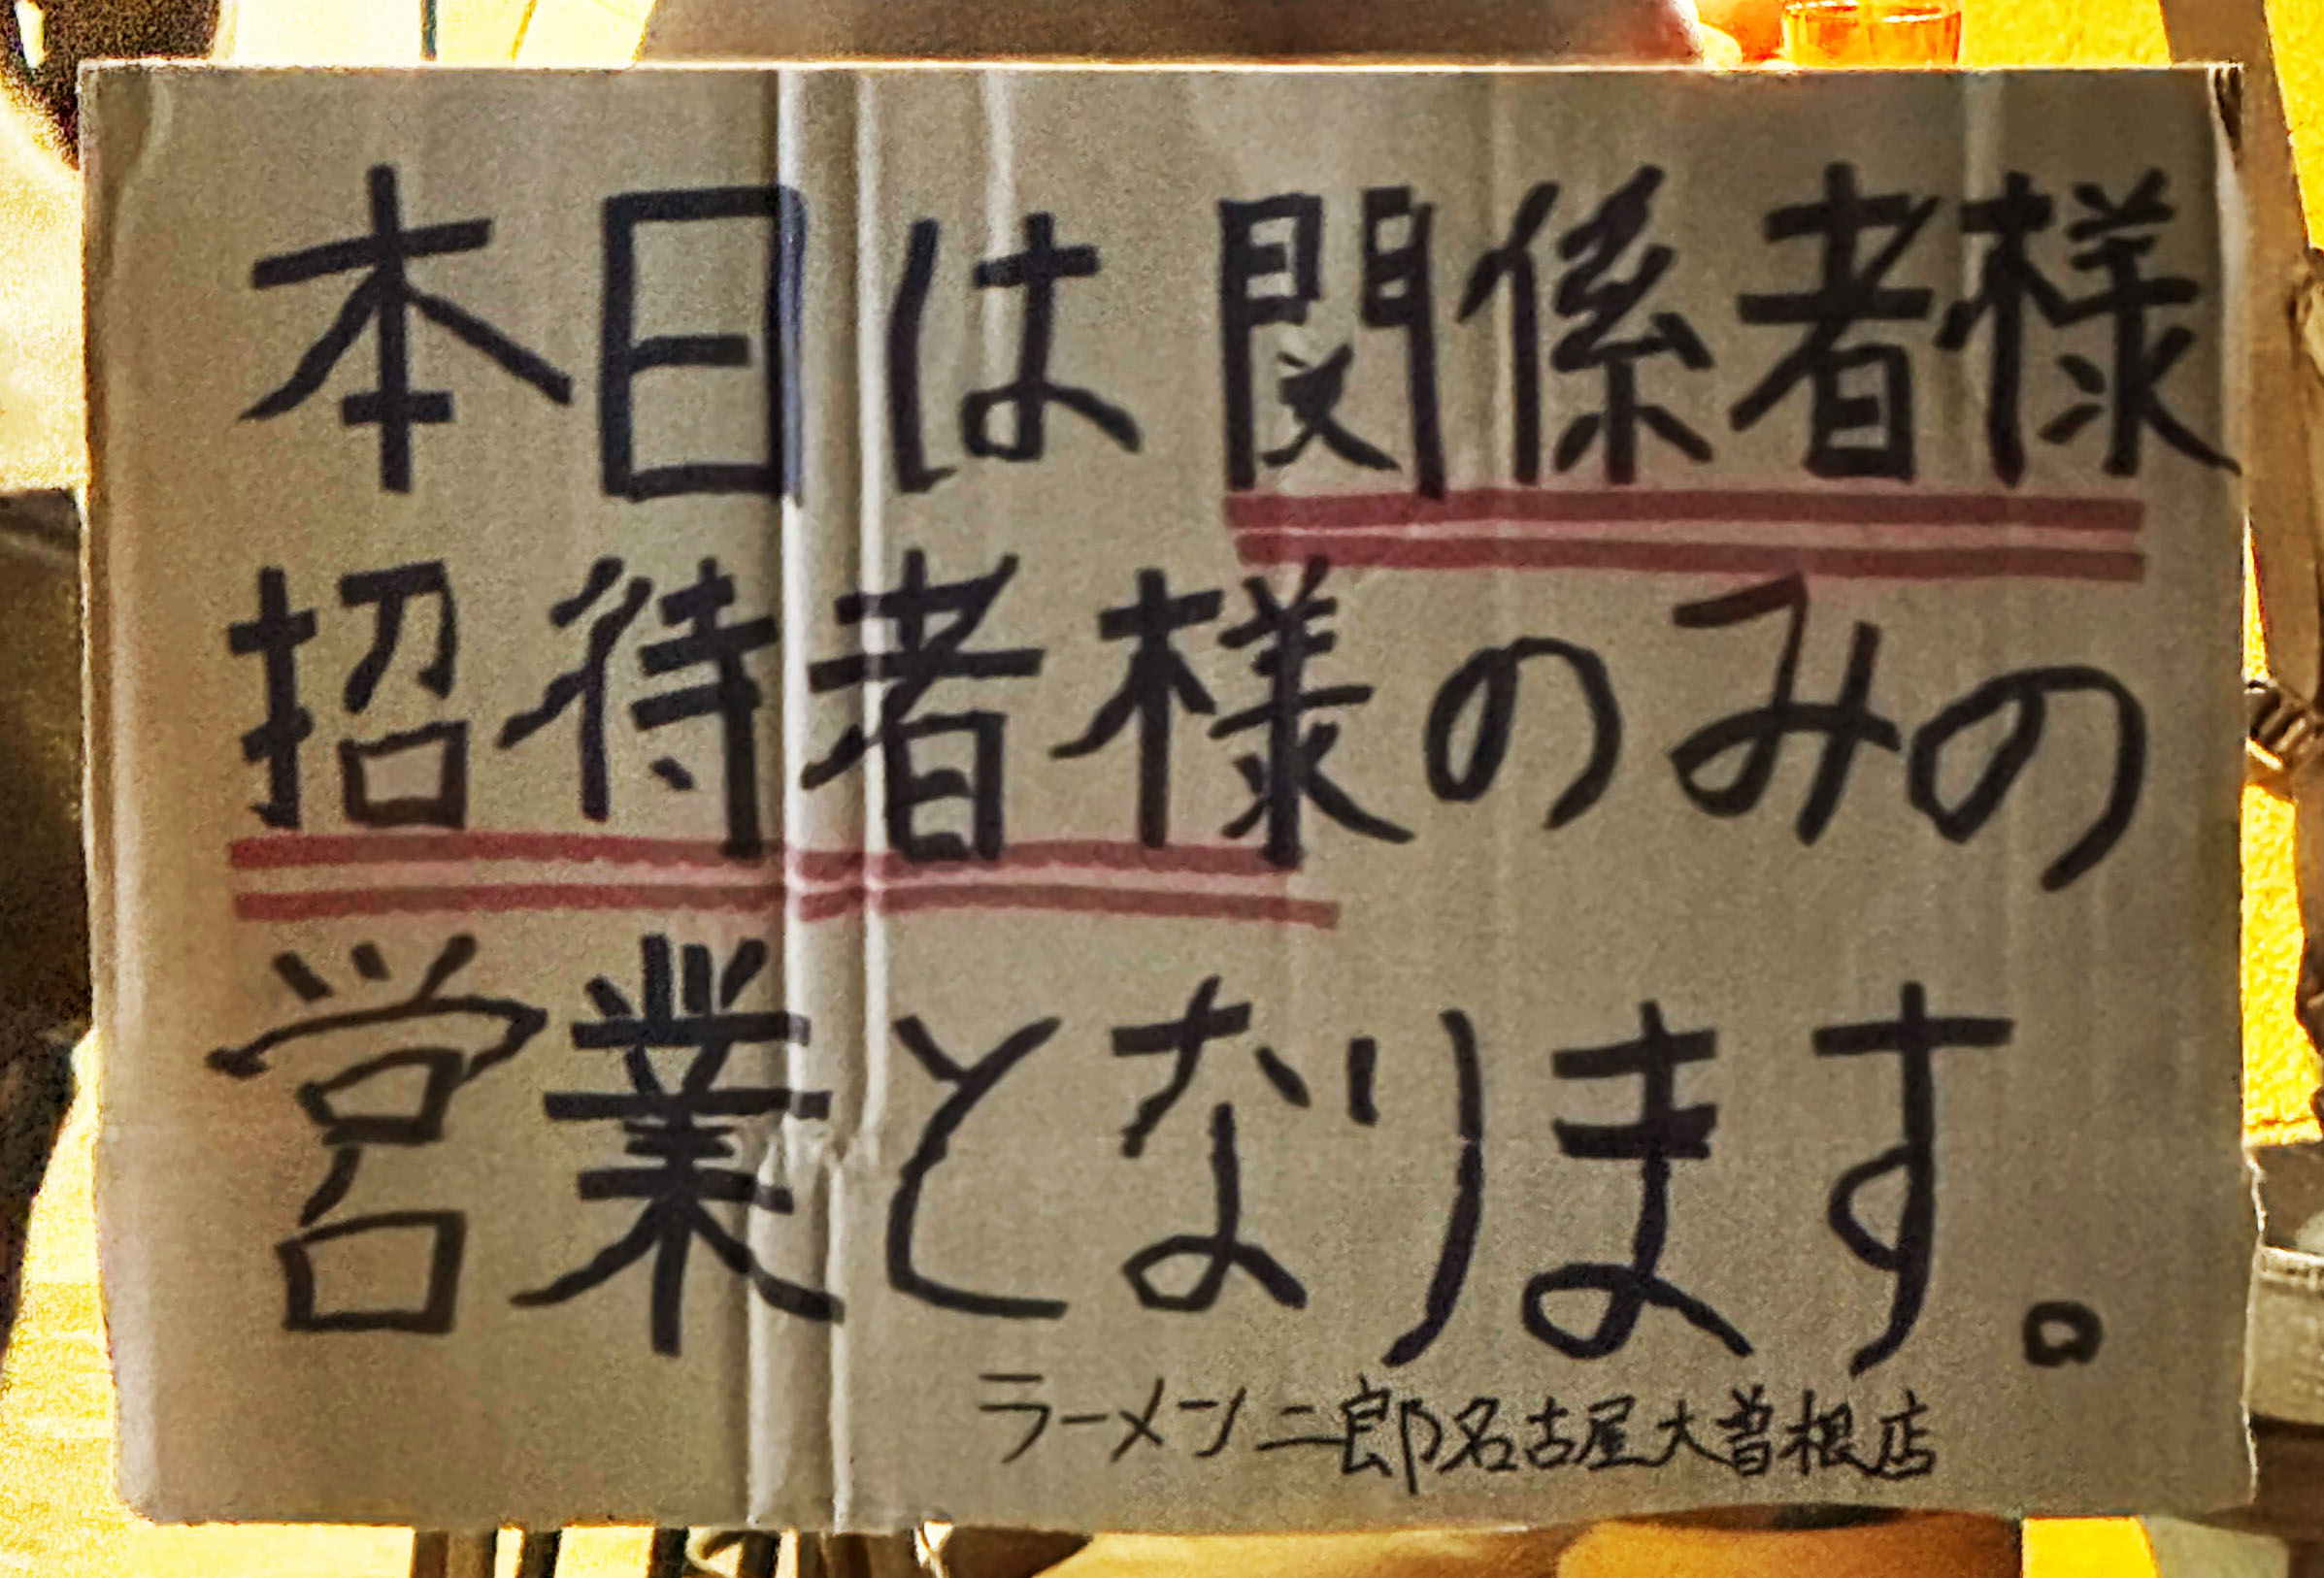 本日は関係者様
招待者様のみの
営業となります。
ラーメン二郎名古屋大曽根店